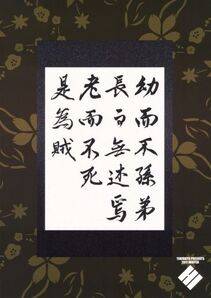 幼而不孫弟
長而無述焉
老而不死
是為賊
PRESENTS
2011 WINTER